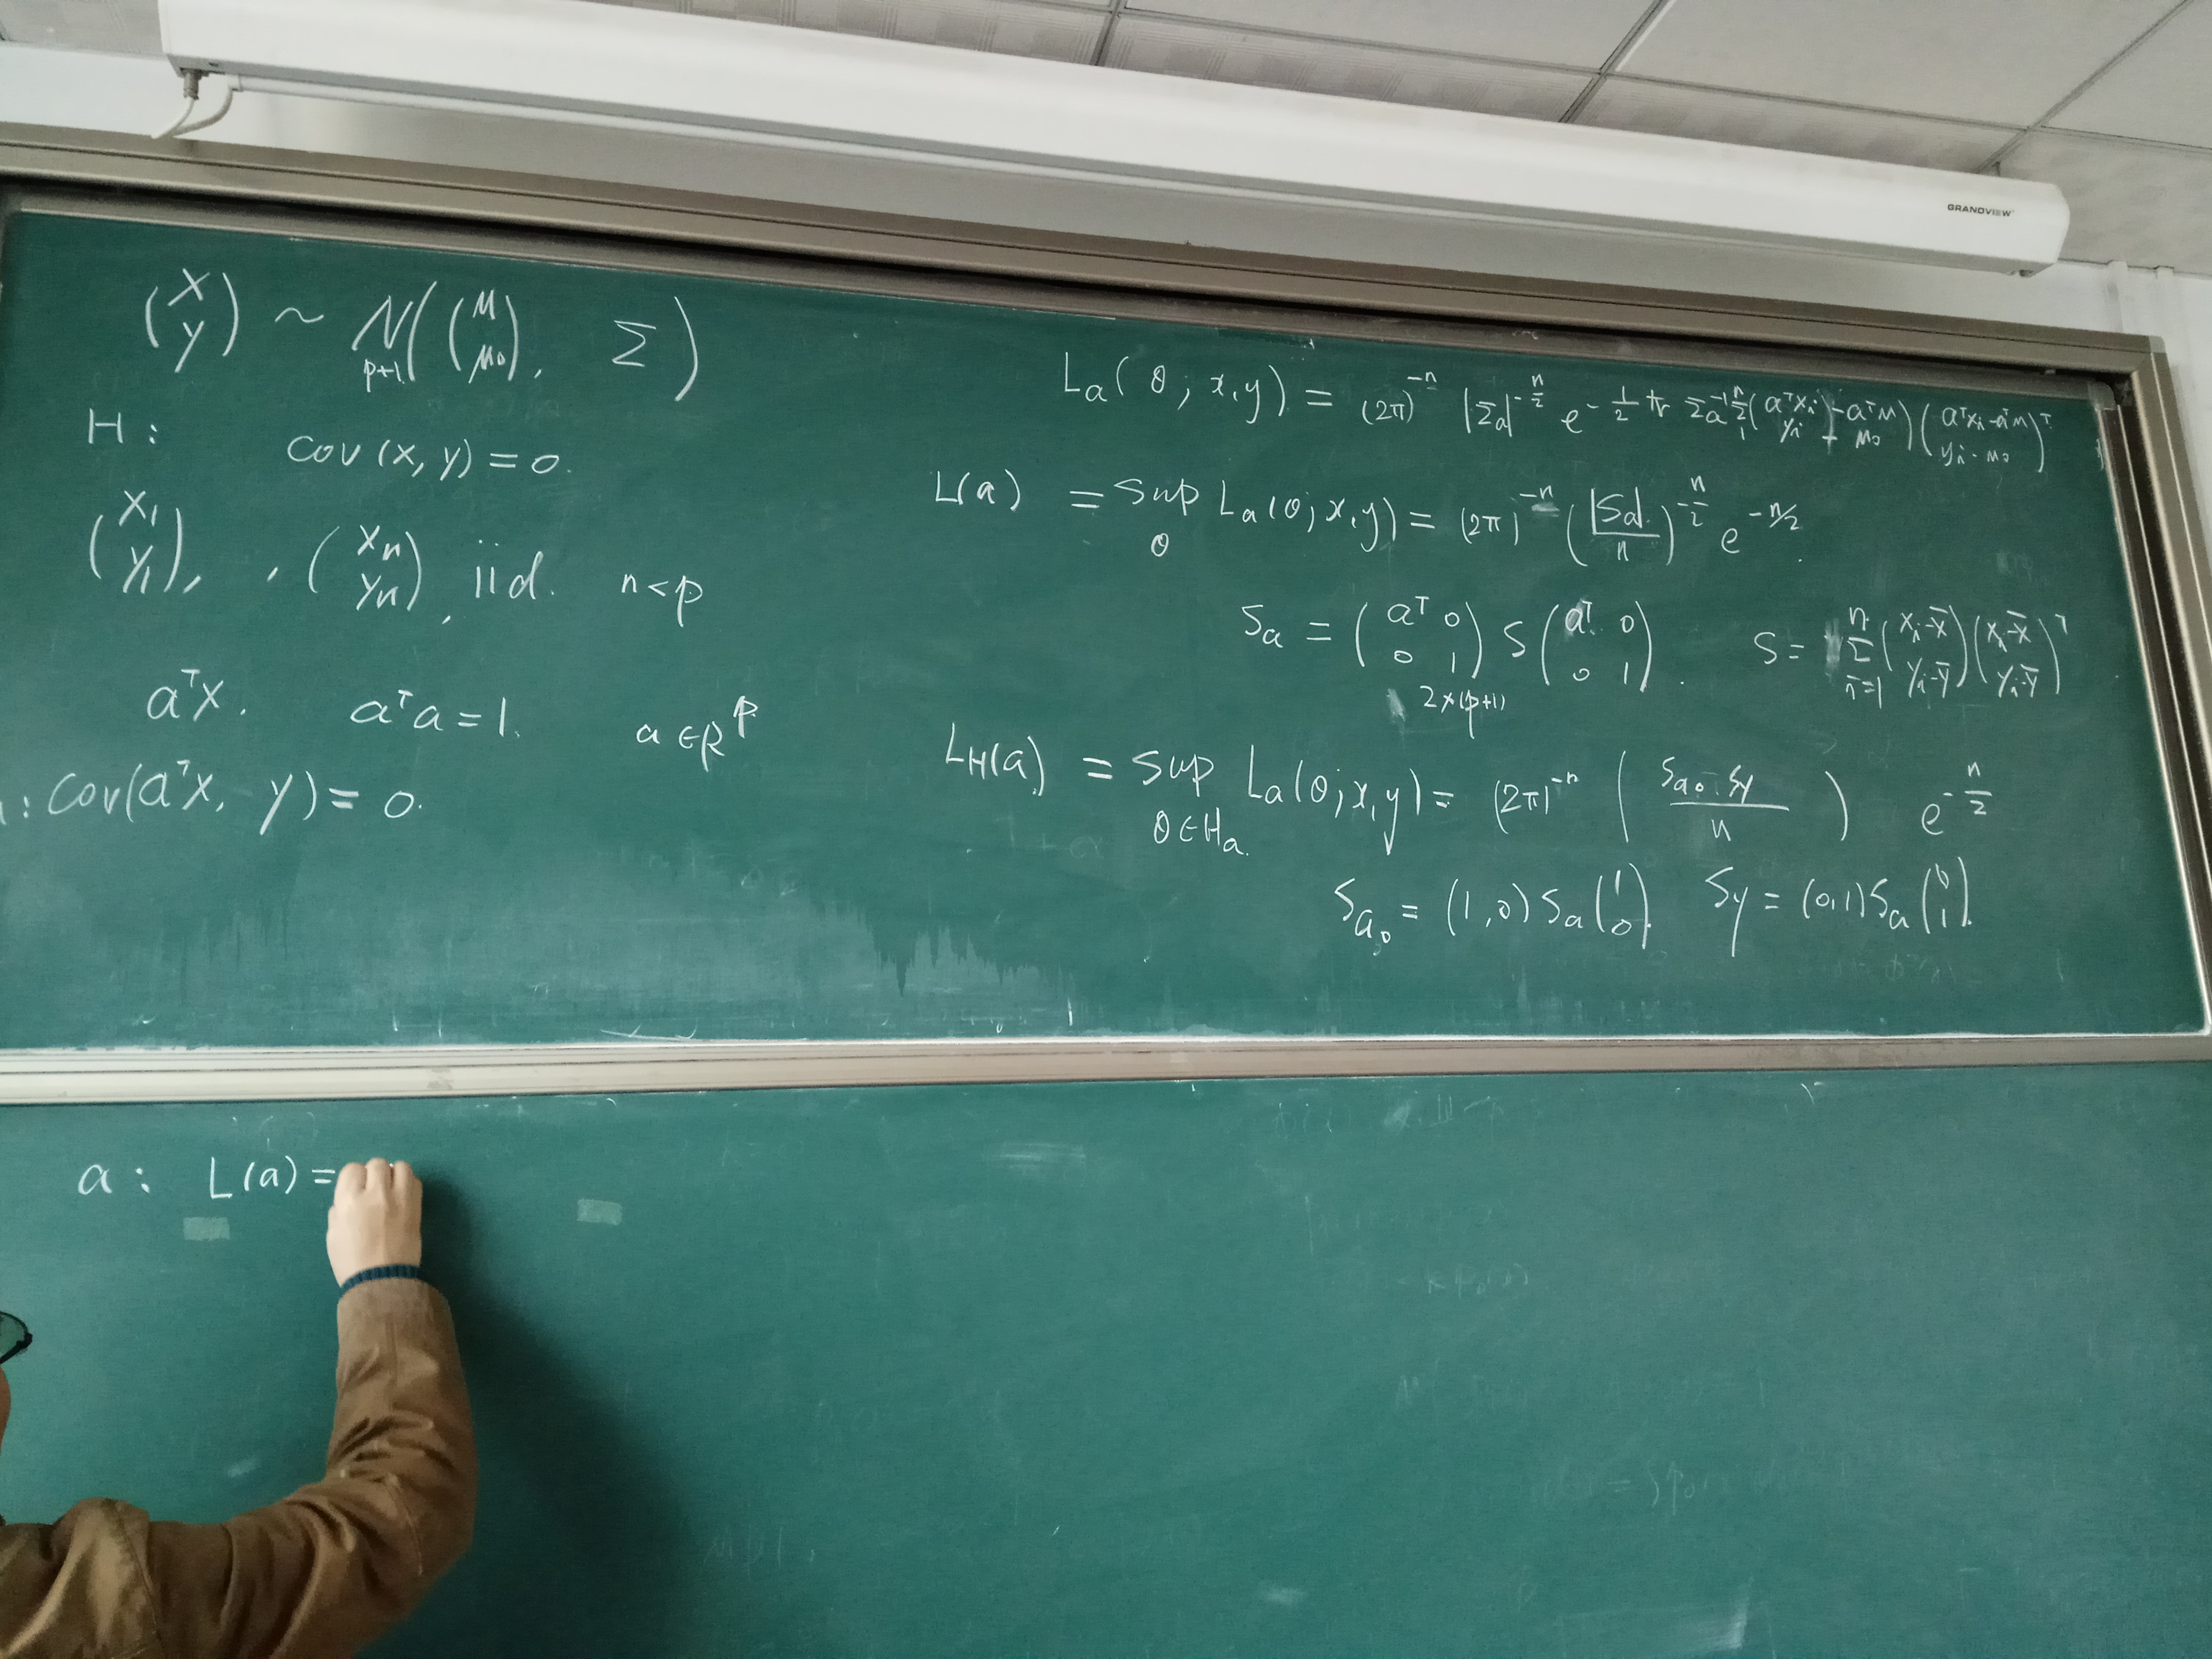 GRANDVIEW
(X y) ~ N_{p+1}((μ μ₀), Σ)
H: cov(x, y) = 0.
(X₁ Y₁), , (Xₙ Yₙ), iid. n < p
aᵀX. aᵀa = 1. a ∈ Rᵖ
: Cov(aᵀX, y) = 0.
Lₐ(θ; x, y) = (2π)⁻ⁿ |Σₐ|^{-n/2} e^{-½ tr Σₐ⁻¹ Σ₁ⁿ (aᵀxᵢ - aᵀμ yᵢ - μ₀)(aᵀxᵢ - aᵀμ yᵢ - μ₀)ᵀ}
L(a) = sup_θ Lₐ(θ; x, y) = (2π)⁻ⁿ (|Sₐ|/n)^{-n/2} e^{-n/2}.
Sₐ = (aᵀ 0 0 1)_{2×(p+1)} S (aᵀ 0 0 1). S = Σ_{i=1}^n (xᵢ - x̄ yᵢ - ȳ)(xᵢ - x̄ yᵢ - ȳ)ᵀ
L_H(a) = sup_{θ∈Hₐ} Lₐ(θ; x, y) = (2π)⁻ⁿ (S_{a₀}·S_y / n) e^{-n/2}
S_{a₀} = (1, 0) Sₐ (1 0). S_y = (0, 1) Sₐ (0 1).
a: L(a) =